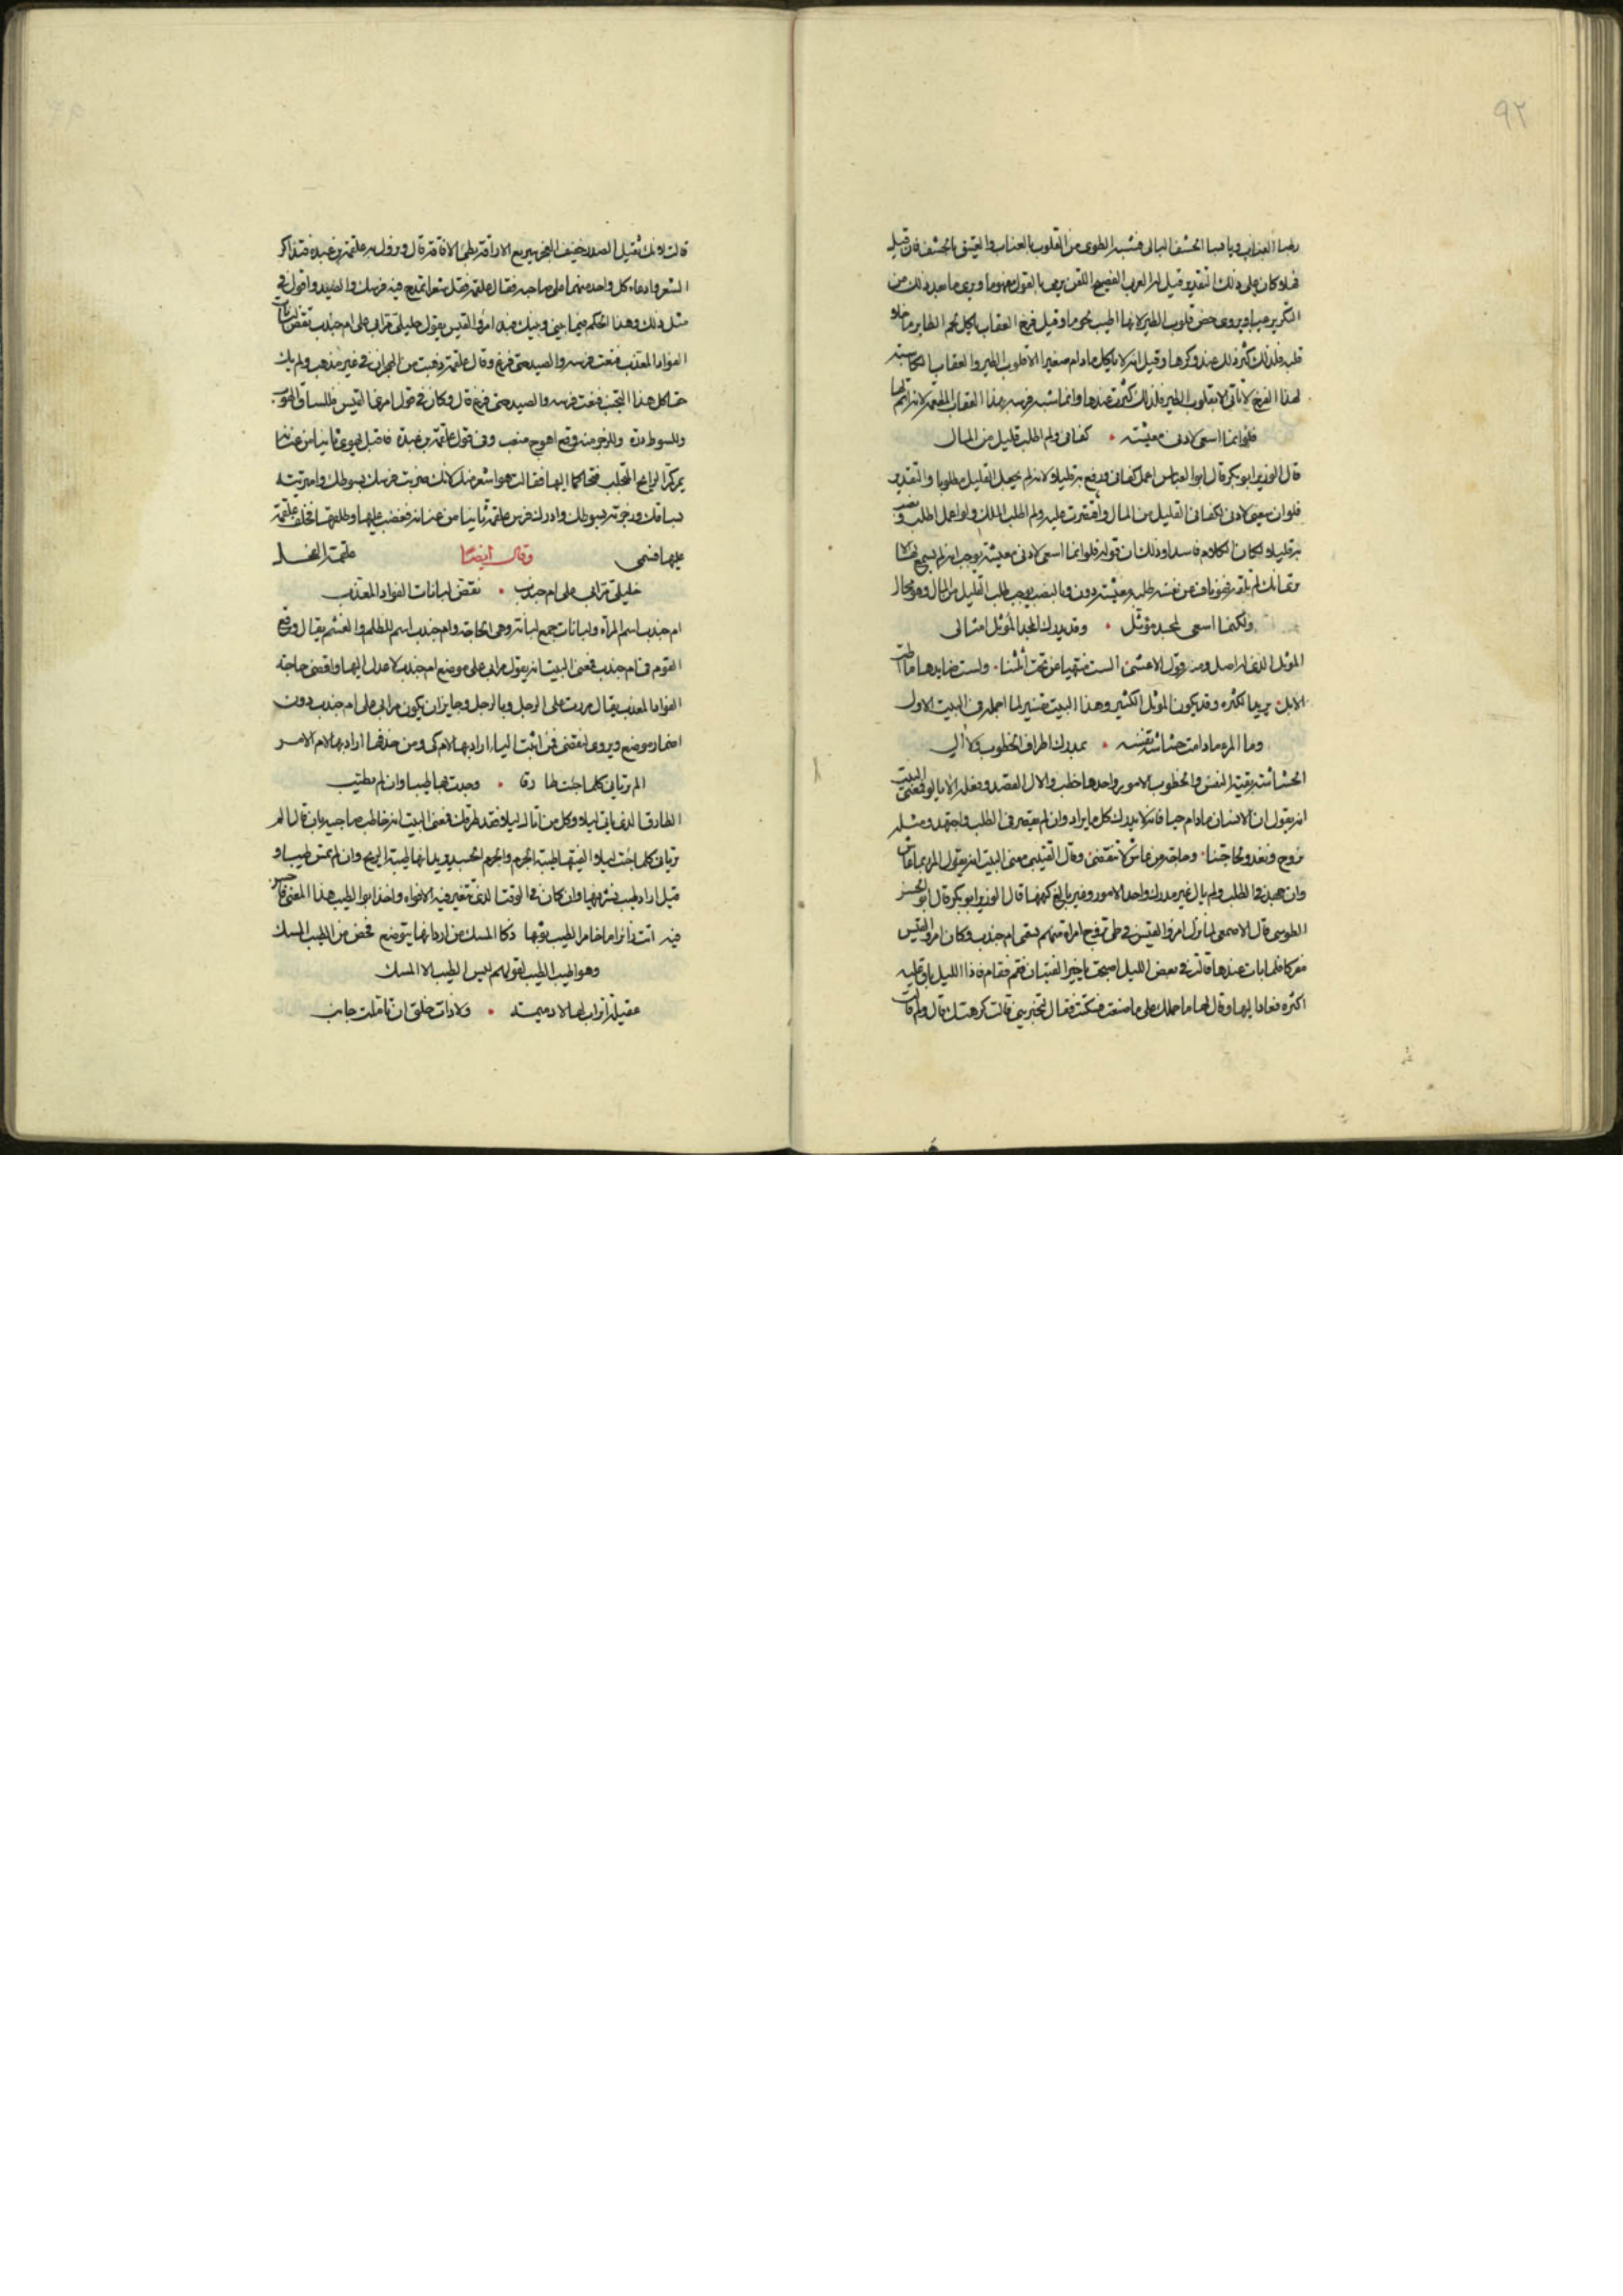 ٩٢
رطبا العناب ويابسا الحشف البالى فشبه الطرى من القلوب بالعناب والعتيق بالحشف فان قيل
فهلا كان على ذلك التقدير قيل له العرب الفصيح اللقن يرمى بالقول مفهوما ويرى ما بعد ذلك من
التكرير عيا ويروى خص قلوب الطير لانها اطيب لحوما وقيل فرخ العقاب ياكل لحم الطاير ما خلا
قلبه فلذلك كثر ذلك عند وكرها وقيل انه لا ياكل ما دام صغيرا الا قلوب الطير والعقاب الكاسبة
لهذا الفرخ لا تاتى الا بقلوب الطير فلذلك كثرت عندها وانما شبه فرسه بهذا العقاب
فلو انما اسعى لادنى معيشة • كفانى ولم اطلب قليل من المال
قال الوزير ابو بكر قال ابو العباس اعمل كفانى ورفع به قليلا ولانه لم يجعل القليل مطلوبا والتقدير
فلو ان سعيى لادنى لكفانى القليل من المال واقتصرت عليه ولم اطلب الملك ولو اعمل اطلب ونصب
به قليلا لكان الكلام فاسدا وذلك ان قوله فلو انما اسعى لادنى معيشة يوجب انه لم يسع لها
ولكنما اسعى لمجد مؤثل • وقد يدرك المجد المؤثل امثالى
المؤثل الذى له اصل ومنه قول الاعشى الست منتهيا عن نحت أثلتنا ولست ضايرها ما اطت
الابل يريد الكثرة وقد يكون المؤثل الكثير وهذا البيت تفسير لما اجمله فى البيت الاول
وما المرء ما دامت حشاشة نفسه • بمدرك اطراف الخطوب ولا آلى
الحشاشة بقية النفس والخطوب الامور واحدها خطب والال المقصر وفعله الا يالو فمعنى البيت
انه يقول ان الانسان ما دام حيا فانه لا يدرك كل ما يراد وان لم يقصر فى الطلب واجتهد ومثله
نروح ونغدو لحاجتنا وحاجة من عاش لا تنقضى وقال القتيبى معنى البيت انه يقول المرء ما عاش
وان جهد فى الطلب ولم يال غير مدرك واحد الامور وغير بالغ كلها قال الوزير ابو بكر قال ابو الحسن
الطوسى قال الاصمعى لما نزل امرؤ القيس فى طى تزوج امراة منهم تسمى ام جندب وكان امرؤ القيس
مفركا فلما بات عندها قالت فى بعض الليل اصبحت يا خير الفتيان فقم فقام فاذا الليل باق عليه
اكثره فعاد اليها وقال لها ما حملك على ما صنعت فسكتت فقال لتخبرينى قالت كرهتك قال ولم قالت
قالت لانك ثقيل الصدر خفيف العجز سريع الاراقة بطى الافاقة قال ونزل به علقمة بن عبدة فتذاكر
الشعر وادعاه كل واحد منهما على صاحبه فقال علقمة فقل شعرا تمدح فيه فرسك والصيد واقول فى
مثل ذلك وهذا الحكم بينى وبينك فبدا امرؤ القيس يقول خليلى مرا بى على ام جندب نقض لبانات
الفواد المعذب فنعت فرسه والصيد حتى فرغ وقال علقمة ذهبت من الهجران فى غير مذهب ولم يك
حقا كل هذا التجنب فنعت فرسه والصيد حتى فرغ قال وكان فى قول امرئ القيس فللساق الهوب
وللسوط درة وللزجر منه وقع اهوج منعب وفى قول علقمة بن عبدة فاقبل يهوى ثانيا من عنانه
يمر كمر الرايح المتحلب فتحاكما اليها فقالت هو اشعر منك لانك ضربت فرسك بسوطك وامتريته
بساقك وزجرته بسوطك وادرك فرس علقمة ثانيا من عنانه فغضب عليها وطلقها فخلف علقمة
عليها فسمى وقال ايضا علقمة الفحل
خليلى مرا بى على ام جندب • نقض لبانات الفواد المعذب
ام جندب اسم المراة ولبانات جمع لبانة وهى الحاجة وام جندب اسم للظلم والغشم يقال وقع
القوم فى ام جندب فمعنى البيت انه يقول مرا بى على موضع ام جندب لاعدل اليها واقضى حاجة
الفواد المعذب يقال مررت على الرجل وبالرجل وجايز ان يكون مرا بى على ام جندب دون
اضمار موضع ويروى لنقضى فمن اثبت الياء اراد بها لام كى ومن حذفها اراد بها لام الامر
الم تريانى كلما جئت طارقا • وجدت بها طيبا وان لم تطيب
الطارق الذى ياتى ليلا وكل من اتاك ليلا فقد طرقك فمعنى البيت انه خاطب صاحبيه بان قال الم
تريانى كلما جئت ليلا الفيتها طيبة الجرم والجرم الجسد ويريد انها طيبة الريح وان لم تمس طيبا و
قيل اراد طيب نشر فيها وان كان فى الوقت الذى تتغير فيه الافواه واخذ ابو الطيب هذا المعنى
فيه اتت زائرا ما خامر الطيب ثوبها ذكا المسك من اردانها يتوضع فخص من الطيب المسك
وهو اطيب الطيب لقولهم ليس الطيب الا المسك
عقيلة اتراب لها لا دميمة • ولا ذات خلق ان تاملت جانب